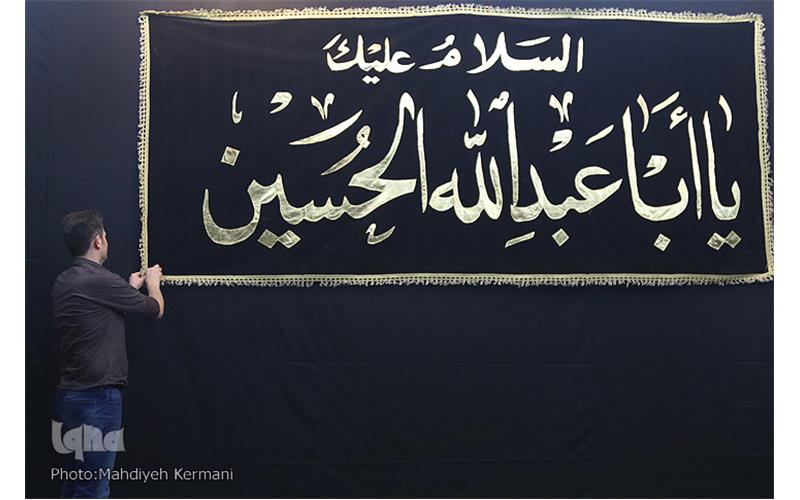 السَلامُ عليكَ
يا أبا عَبدِاللّٰه الحُسين
Iqna
Photo:Mahdiyeh Kermani